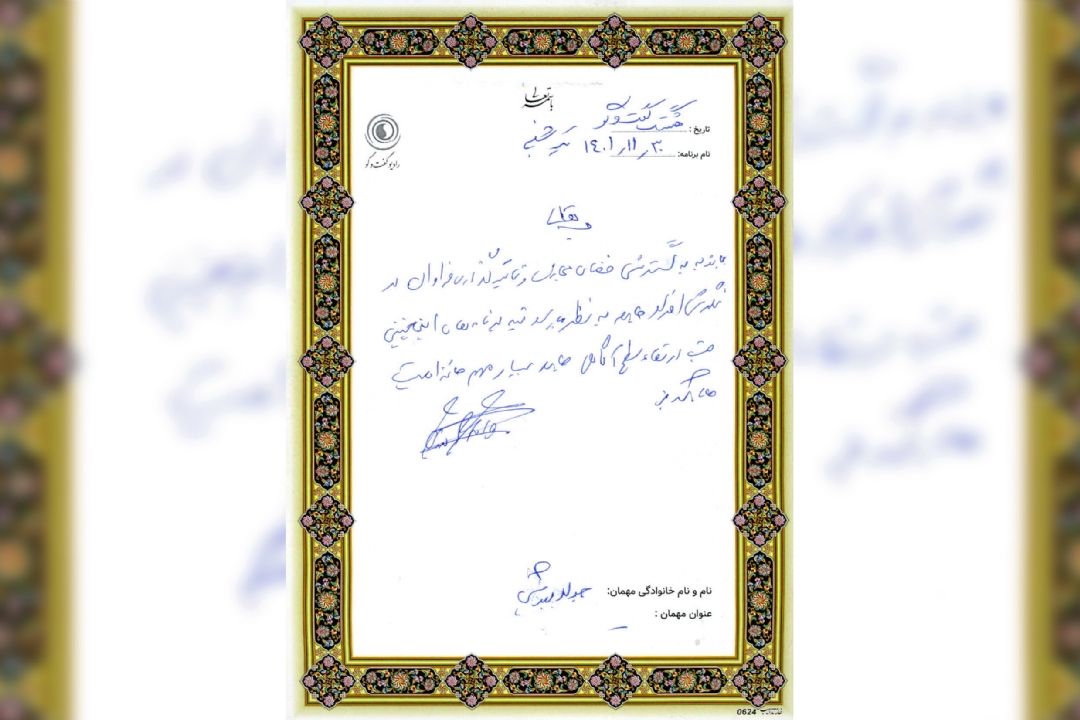 باسمه تعالی
رادیو گفت و گو
تاریخ : گشت گفت و گو
نام برنامه: ۱۴۰۱/۱۱/۳۰ یکشنبه
با توجه به گسترش فضای مجازی و تاثیرگذاری فراوان در
نگرش افراد جامعه به نظر میرسد تهیه برنامه‌های اینچنینی
جهت ارتقاء سطح آگاهی جامعه بسیار مهم حائز اهمیت
نام و نام خانوادگی مهمان: جواد
عنوان مهمان :
0624